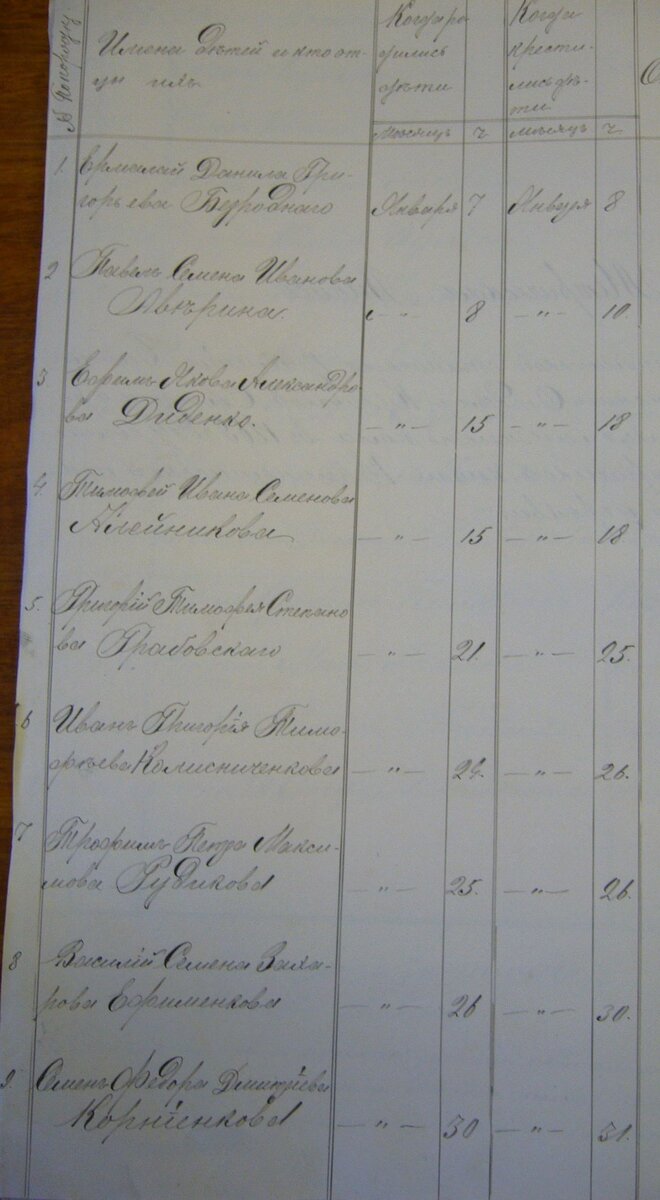 № Попорядку
Имена Дѣтей и кто от-
цы ихъ
Когда ро
дились
дѣти
Когда
крести-
лись дѣ-
ти
Мѣсяцъ ч. Мѣсяцъ ч.
1. Ермолай Данила Гри-
горьева Безроднаго Января 7 Января 8
2 Павелъ Семена Иванова
Авѣрина. „ 8 — „ — 10.
3 Ефимъ Якова Александро
ва Диденко. — „ — 15 — „ — 18
4. Тимофей Ивана Семенова
Алейникова — „ — 15 — „ — 18
5. Григорій Тимофея Степано
ва Грабовскаго — „ — 21. — „ — 25.
6 Иванъ Григорія Тимо-
фѣева Колисниченкова — „ — 24. — „ — 26.
7 Трофимъ Петра Макси-
мова Рудикова — „ — 25. — „ — 26.
8 Василій Семена Заха-
рова Ефименкова — „ — 26 — „ — 30.
9. Семенъ Федора Дмитріева
Корніенкова — „ — 30 — „ — 31.